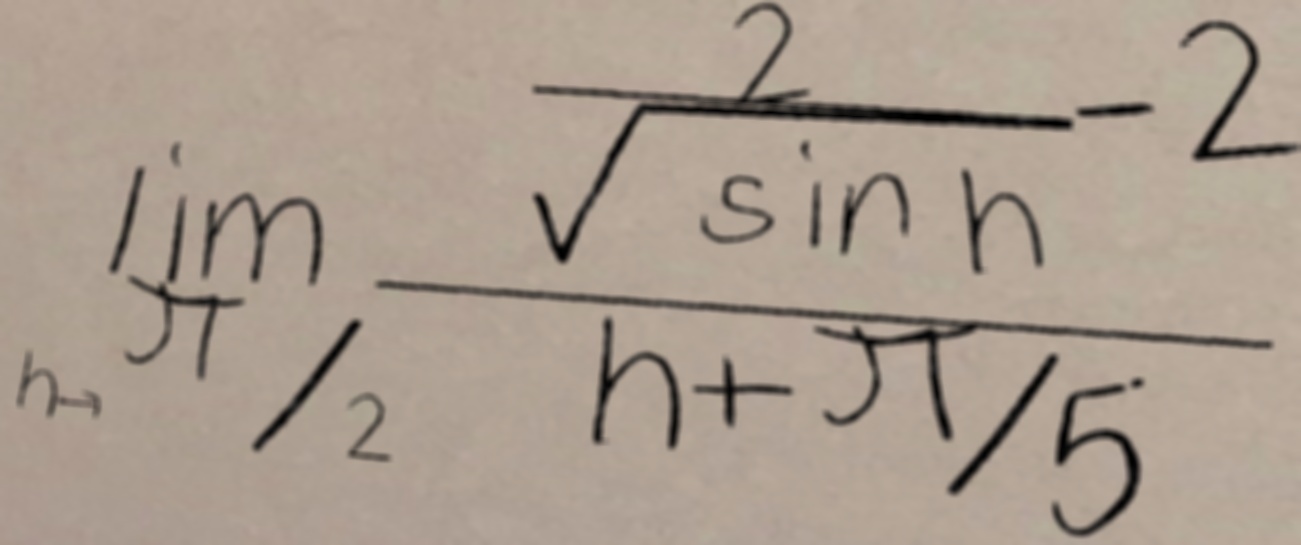 lim h→π/2 (2/√(sin h) - 2)/(h+π/5)